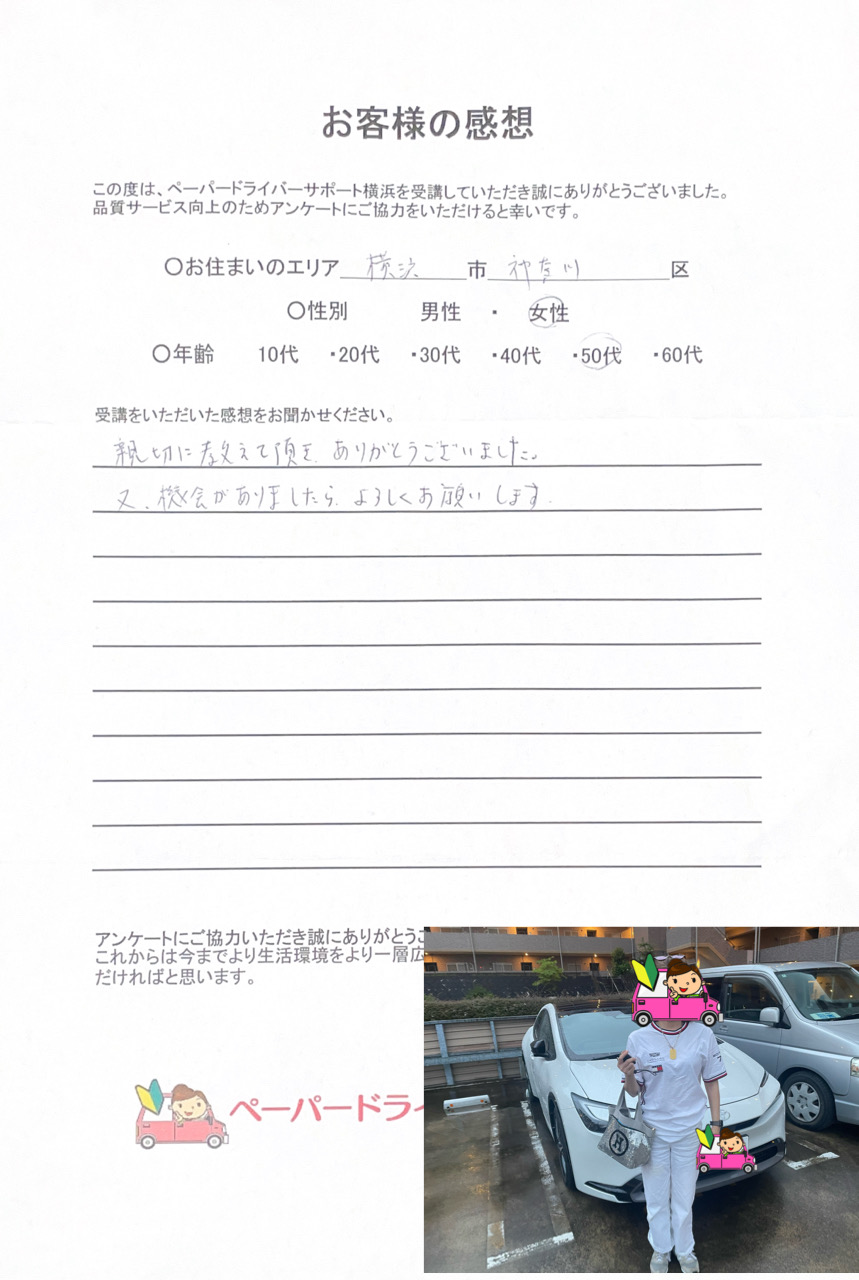 お客様の感想
この度は、ペーパードライバーサポート横浜を受講していただき誠にありがとうございました。
品質サービス向上のためアンケートにご協力をいただけると幸いです。
〇お住まいのエリア 横浜 市 神奈川 区
〇性別 男性 ・ 女性
〇年齢 10代 ・20代 ・30代 ・40代 ・50代 ・60代
受講をいただいた感想をお聞かせください。
親切に教えて頂き、ありがとうございました。
又、機会がありましたら、よろしくお願いします。
アンケートにご協力いただき誠にありがとうご
これからは今までより生活環境をより一層広
だければと思います。
ペーパードライ